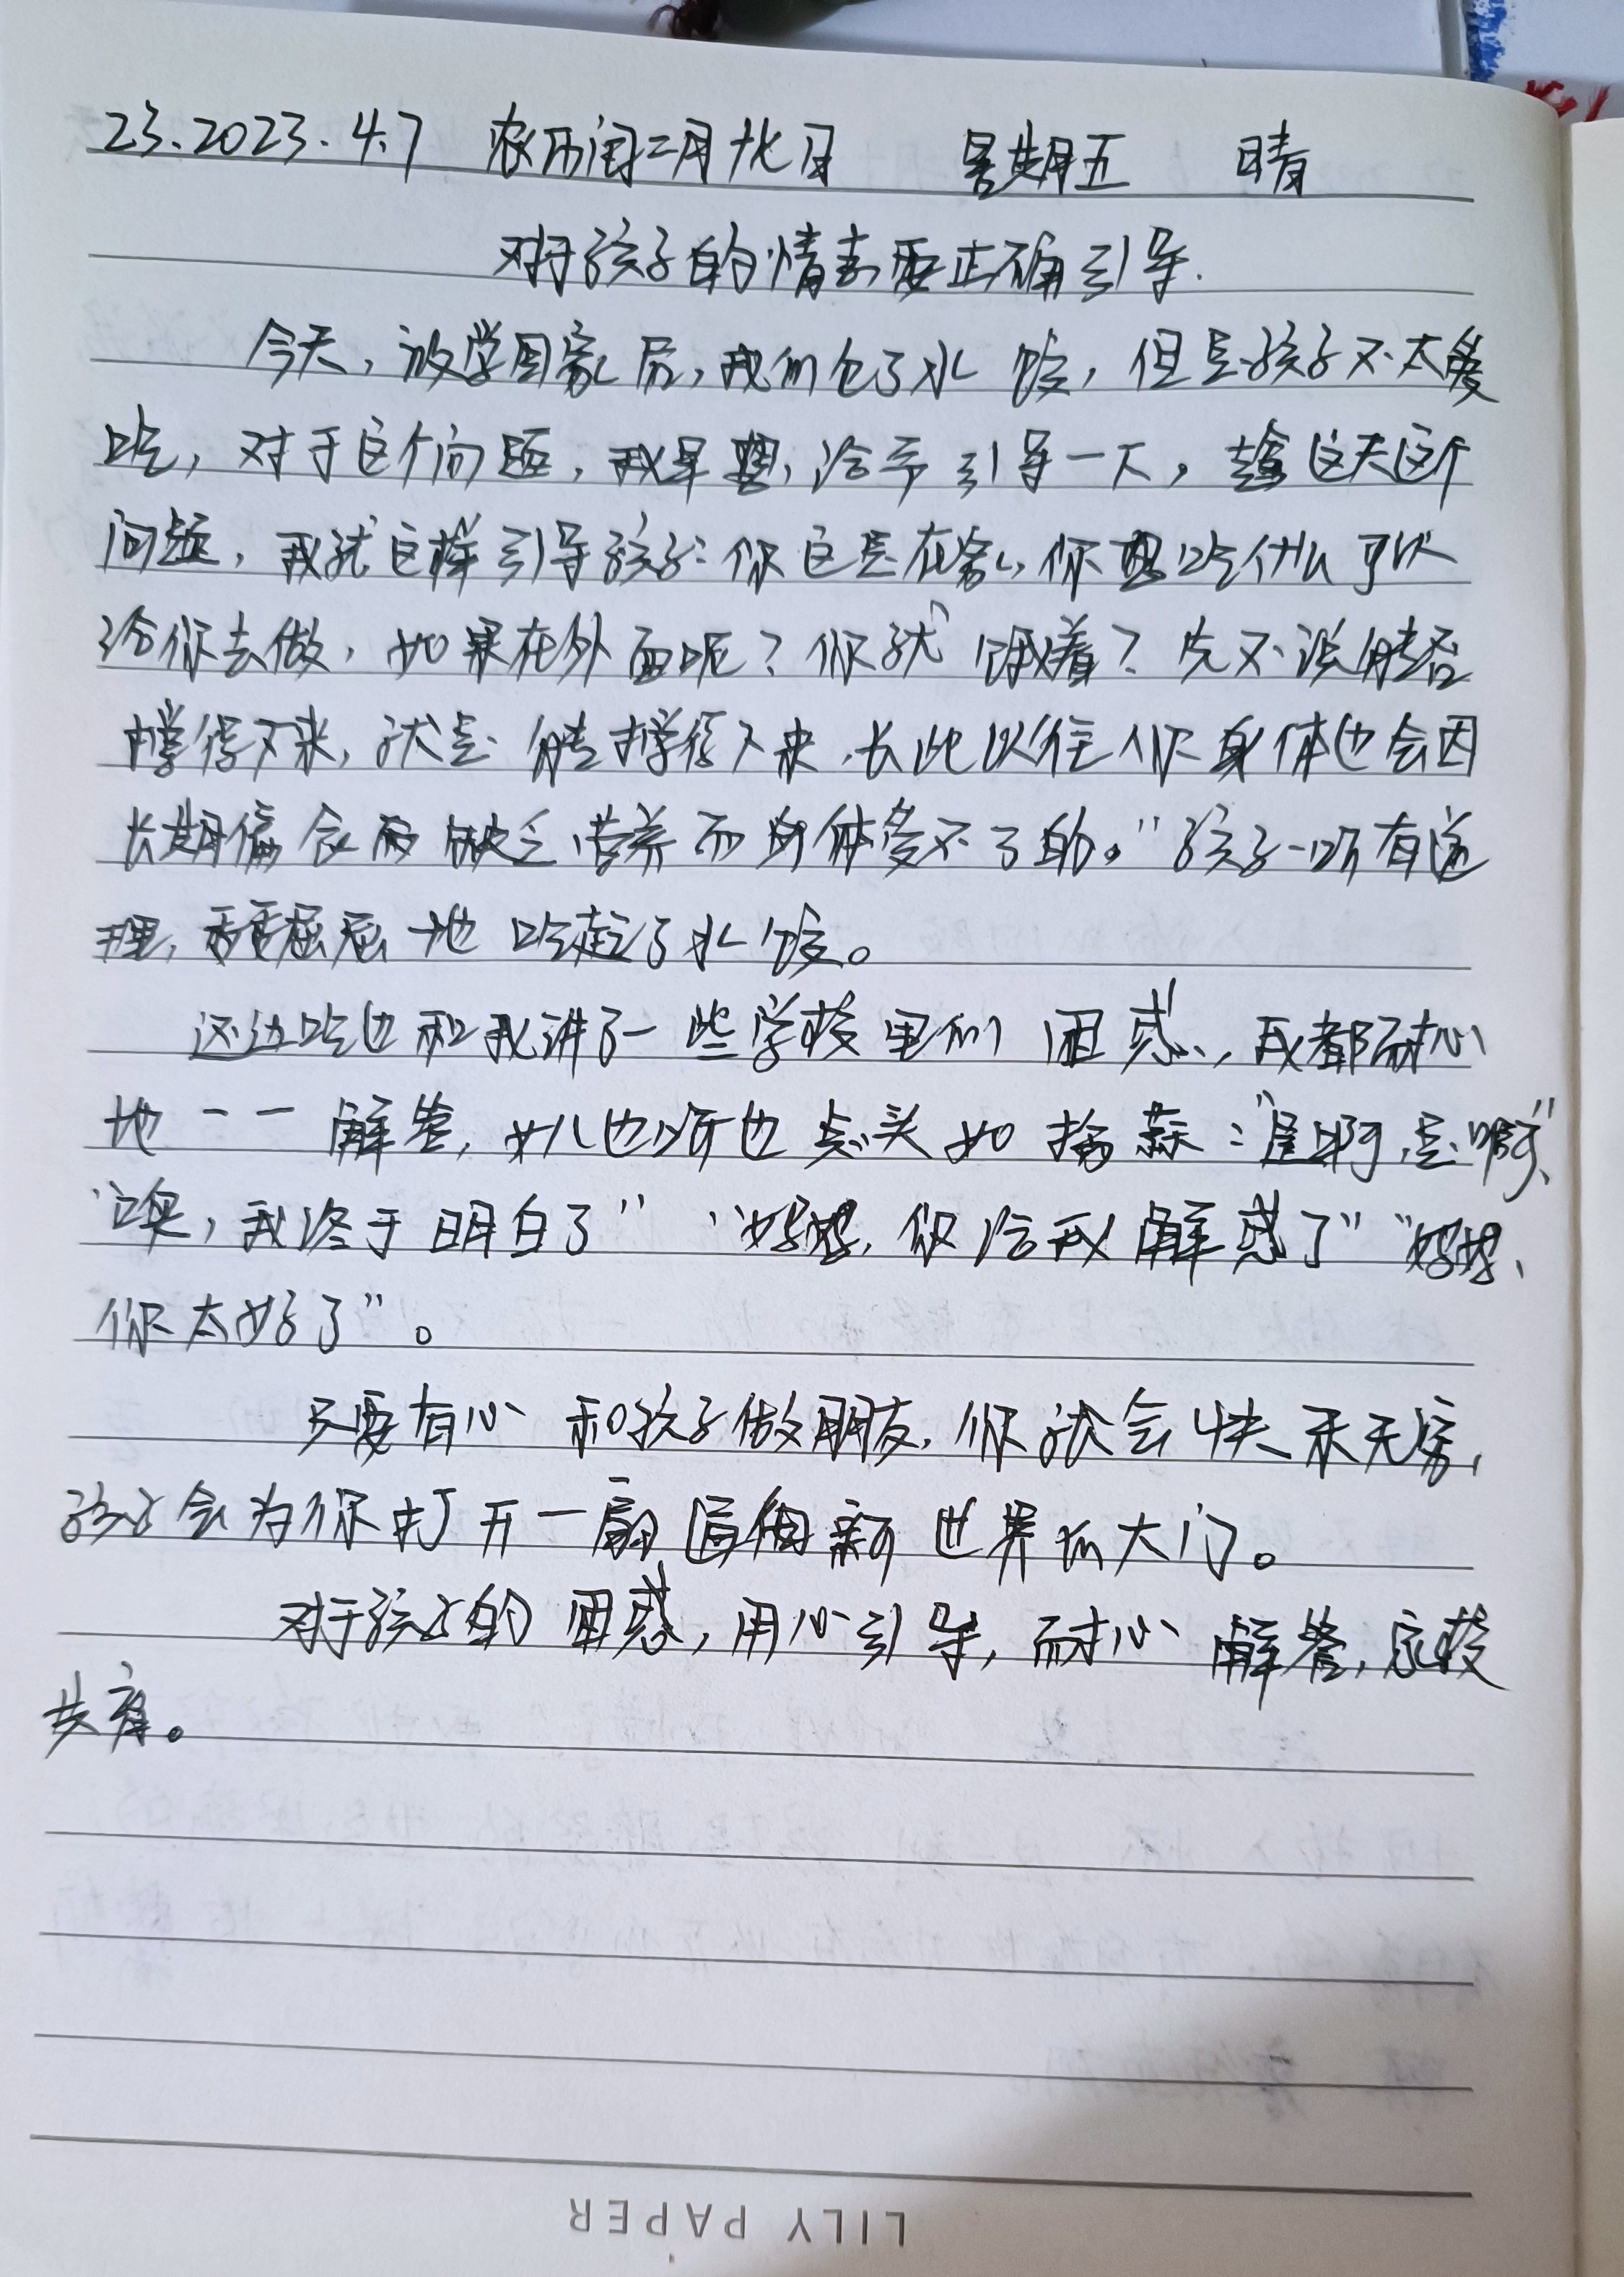 23.2023.4.7 农历闰二月十七日 星期五 晴
对于孩子的情素要正确引导.
今天，放学回家后，我们包了水饺，但是孩子不太爱
吃，对于这个问题，我早想给予引导一下，趁这天这个
问题，我就这样引导孩子：你这是在家，你想吃什么可以
给你去做，如果在外面呢？你就饿着？先不说能否
撑得下来，就是能撑得下来，长此以往你身体也会因
长期偏食而缺乏营养而身体受不了的。”孩子一听有道
理，委委屈屈地吃起了水饺。
还边吃边和我讲了一些学校里的困惑，我都耐心
地一一解答，女儿边听边点头如捣蒜：“是啊，是啊”、
“噢，我终于明白了”“妈妈，你给我解惑了”“妈妈、
你太好了”。
只要有心和孩子做朋友，你就会快乐无穷，
孩子会为你打开一扇通往新世界的大门。
对于孩子的困惑，用心引导，耐心解答，家校
共育。
LILY PAPER